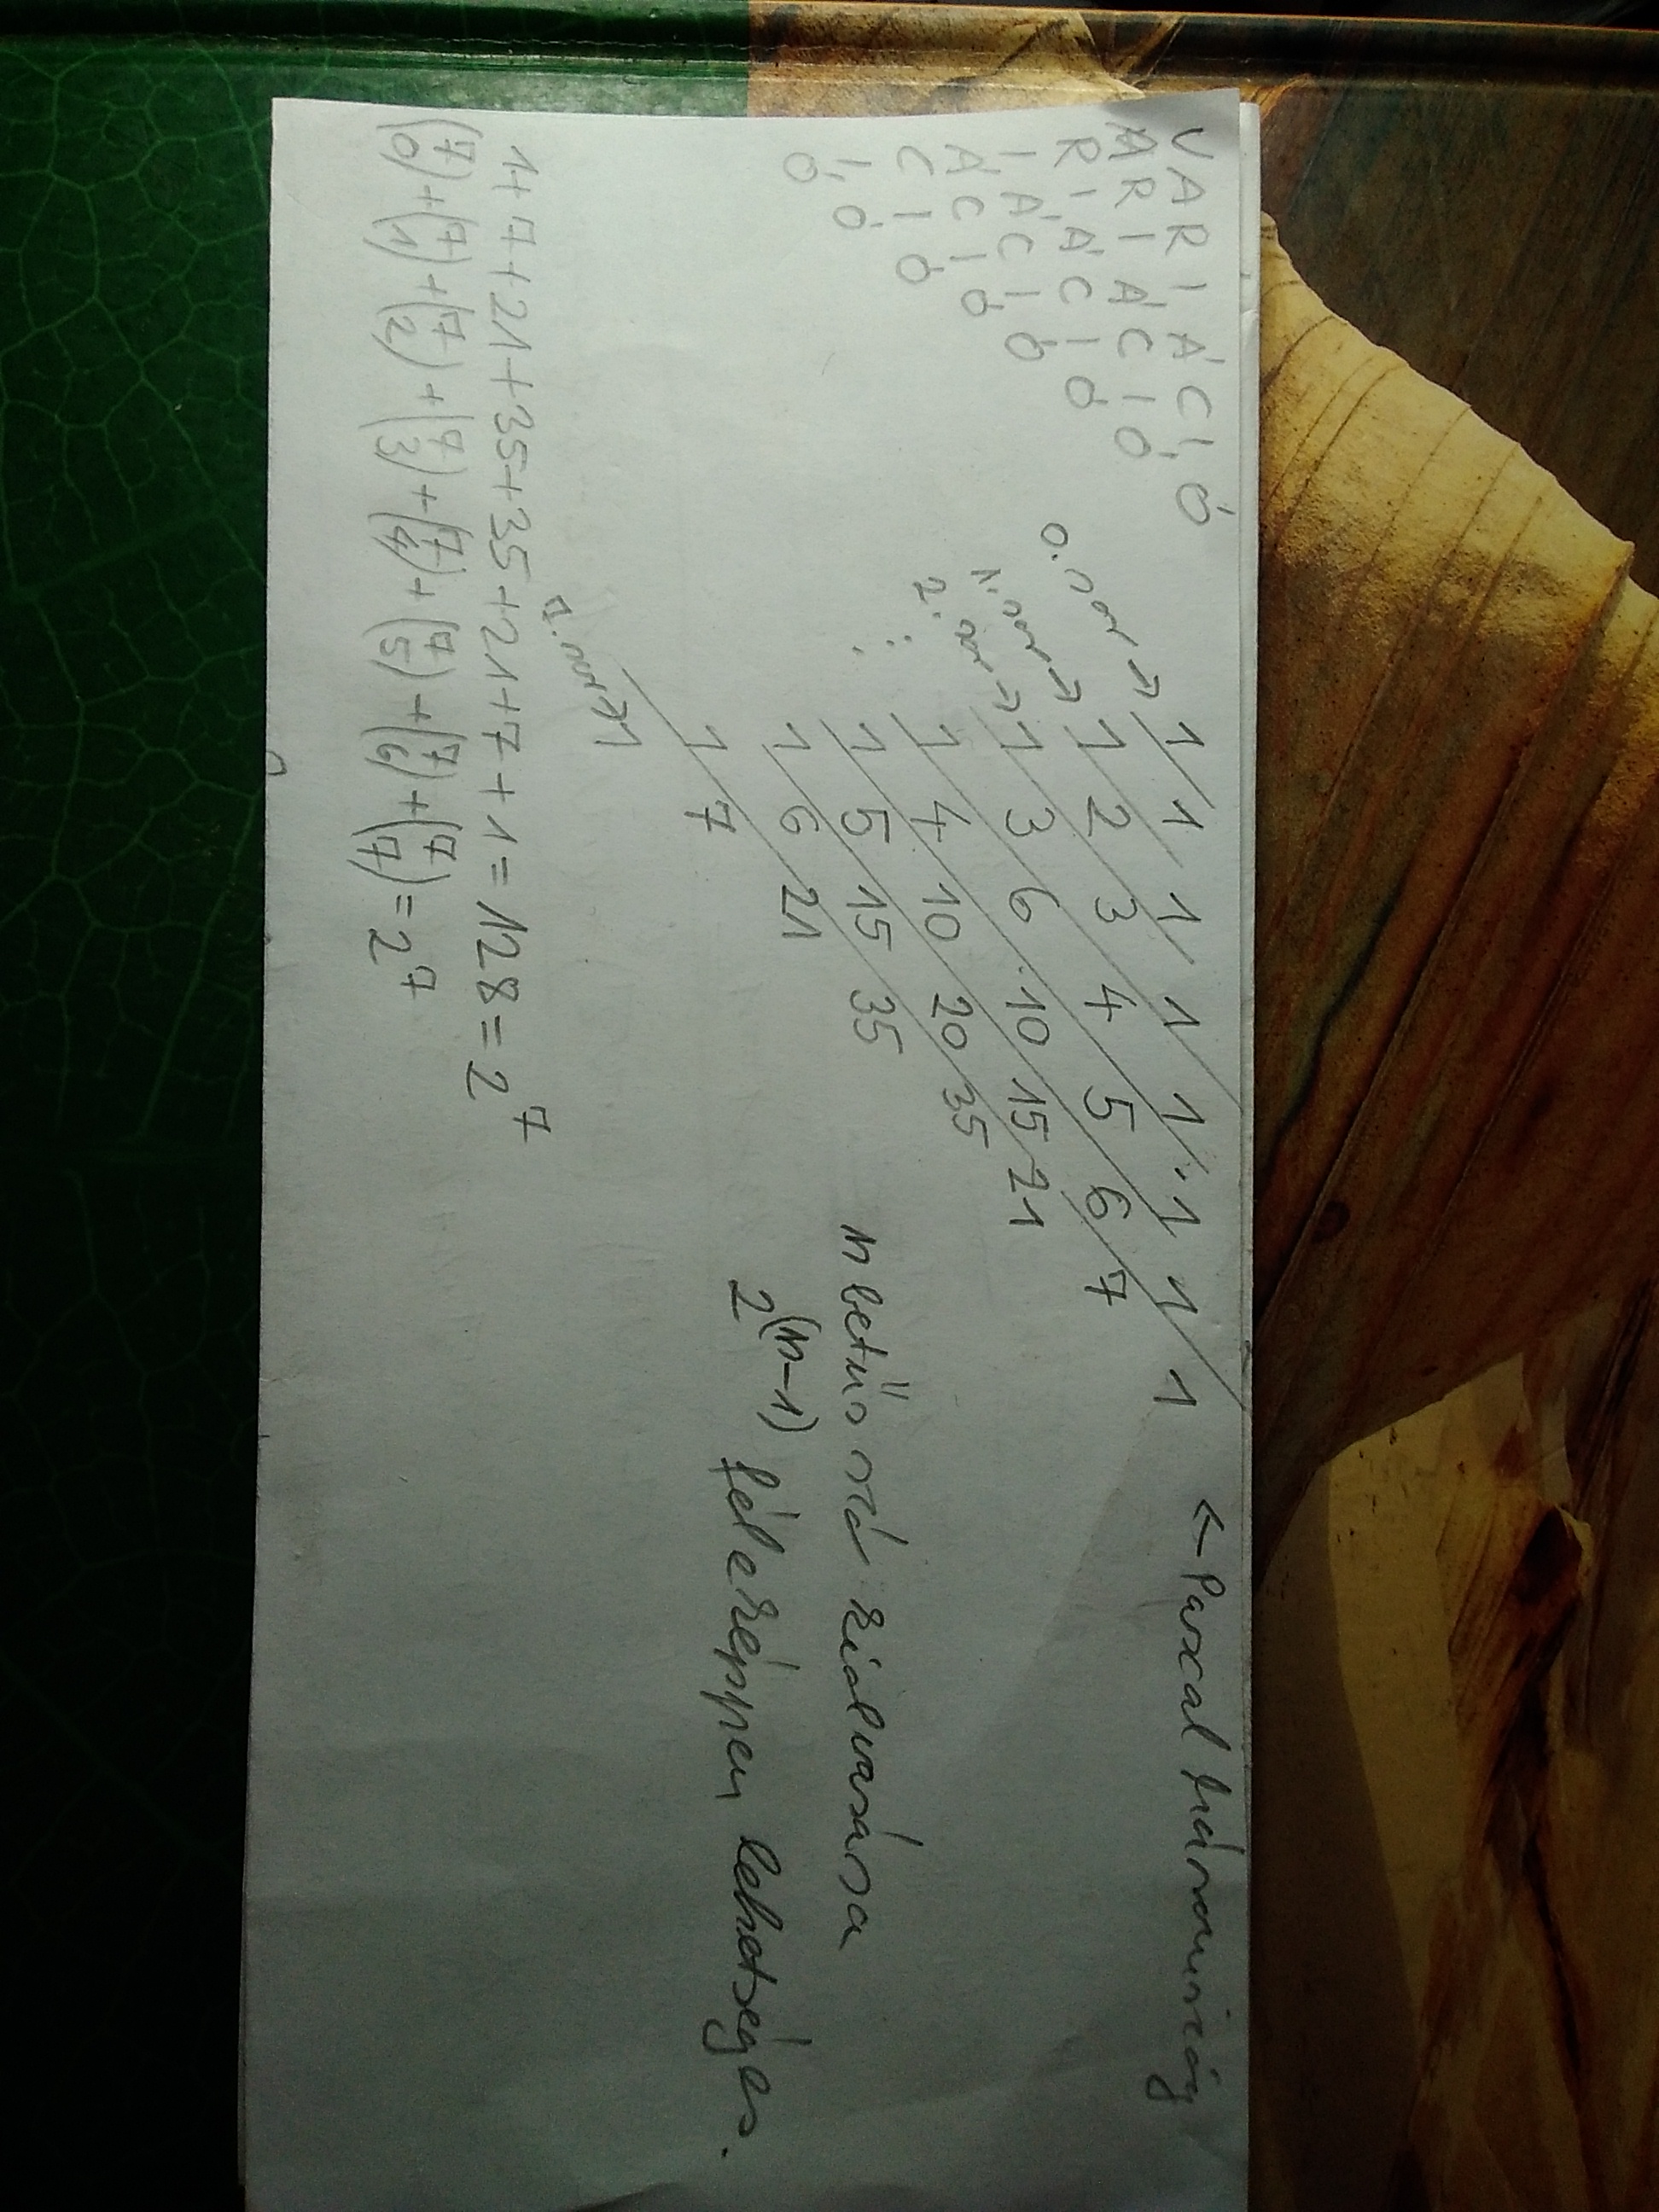 V A R I Á C I Ó
A R I Á C I Ó
R I Á C I Ó
I Á C I Ó
Á C I Ó
C I Ó
I Ó
Ó
0. sor → 1 1 1 1 1 1 1 1 ← Pascal háromszög
1. sor → 1 2 3 4 5 6 7
2. sor → 1 3 6 10 15 21
⋮ 1 4 10 20 35
1 5 15 35
1 6 21
1 7
7. sor → 1
n betűs szó kiolvasása
2^(n-1) féleképpen lehetséges.
1+7+21+35+35+21+7+1=128=2^7
(7 0)+(7 1)+(7 2)+(7 3)+(7 4)+(7 5)+(7 6)+(7 7)=2^7